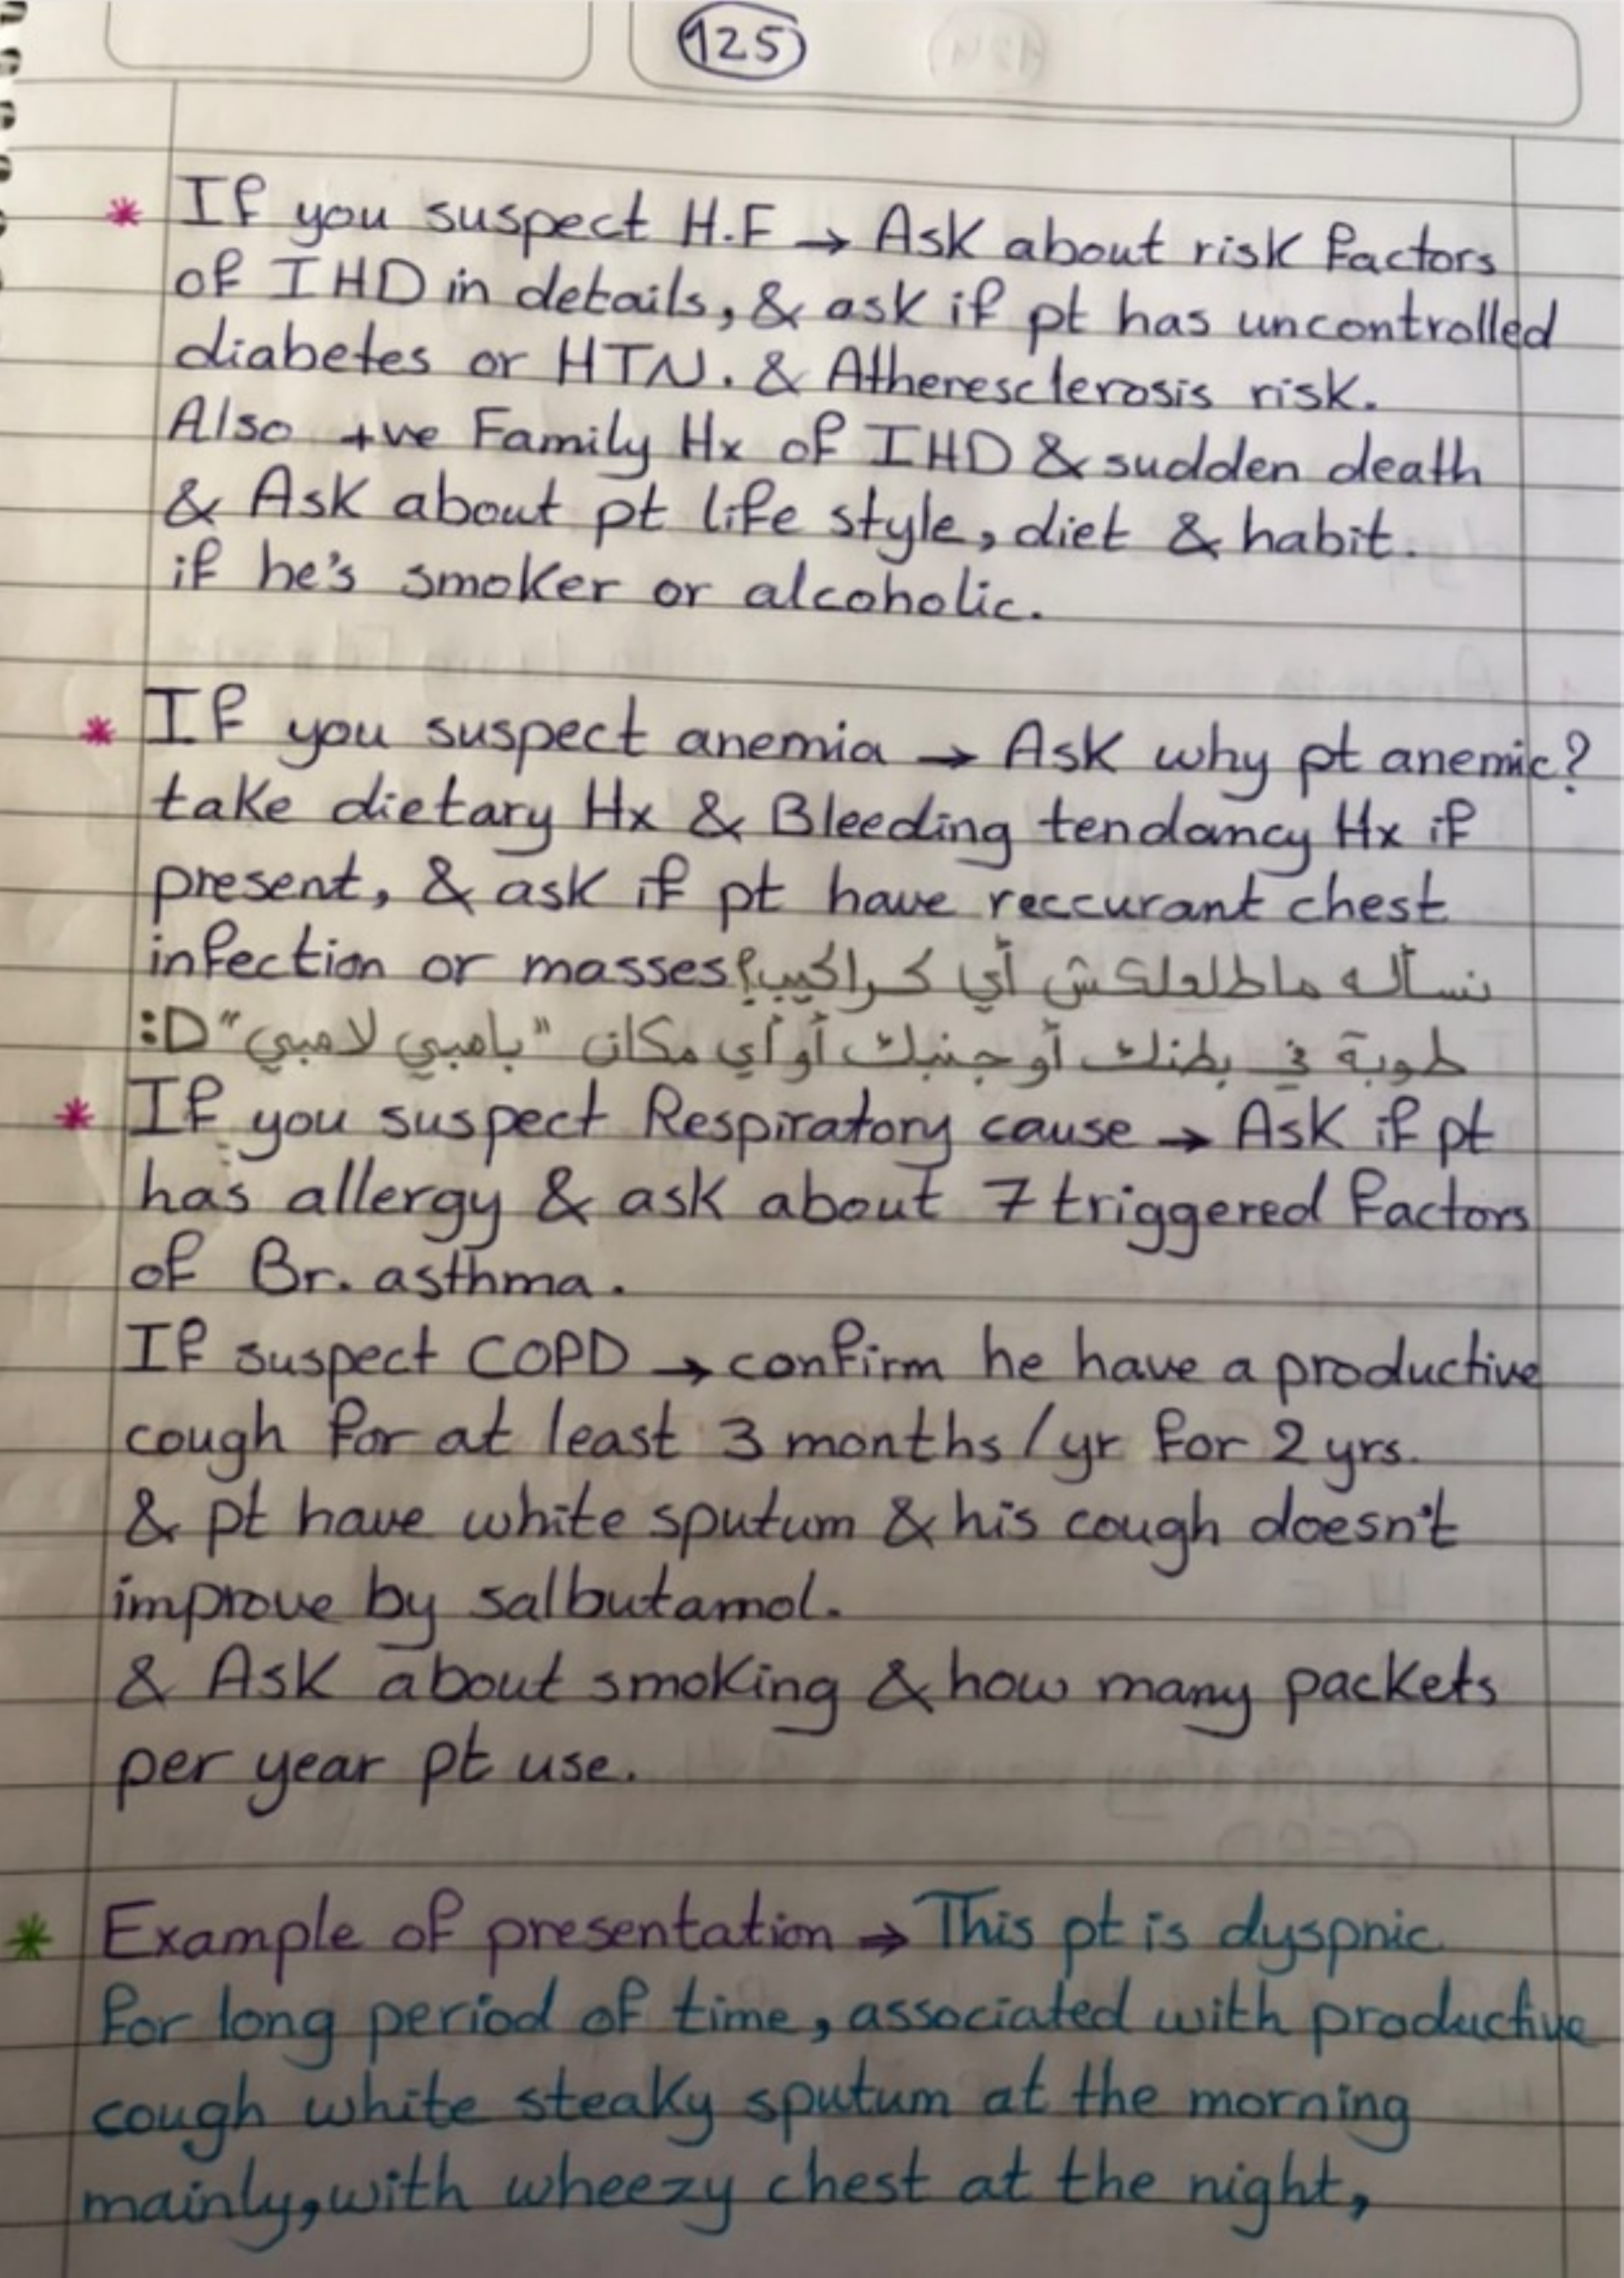 125
* If you suspect H.F → Ask about risk factors
of IHD in details, & ask if pt has uncontrolled
diabetes or HTN. & Atheresclerosis risk.
Also +ve Family Hx of IHD & sudden death
& Ask about pt life style, diet & habit.
if he's smoker or alcoholic.
* If you suspect anemia → Ask why pt anemic?
take dietary Hx & Bleeding tendancy Hx if
present, & ask if pt have reccurant chest
infection or masses? نسأله ماطلعلكش أي كراكيب
طوبة في بطنك أو جنبك أو أي مكان "بامبي لامبي" :D
* If you suspect Respiratory cause → Ask if pt
has allergy & ask about 7 triggered factors
of Br. asthma.
If suspect COPD → confirm he have a productive
cough for at least 3 months / yr for 2 yrs.
& pt have white sputum & his cough doesn't
improve by salbutamol.
& Ask about smoking & how many packets
per year pt use.
* Example of presentation ⇒ This pt is dyspnic
for long period of time, associated with productive
cough white steaky sputum at the morning
mainly, with wheezy chest at the night,